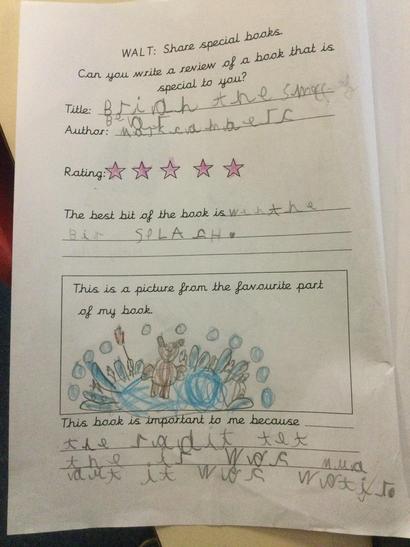 WALT: Share special books.
Can you write a review of a book that is
special to you?
Title: Brian the Smell of
Bear
Author: Mark cambers
Rating:
The best bit of the book is wen the
Bir SPLASH.
This is a picture from the favourite part
of my book.
This book is important to me because
the radit tet
the it wos
vaut it wos